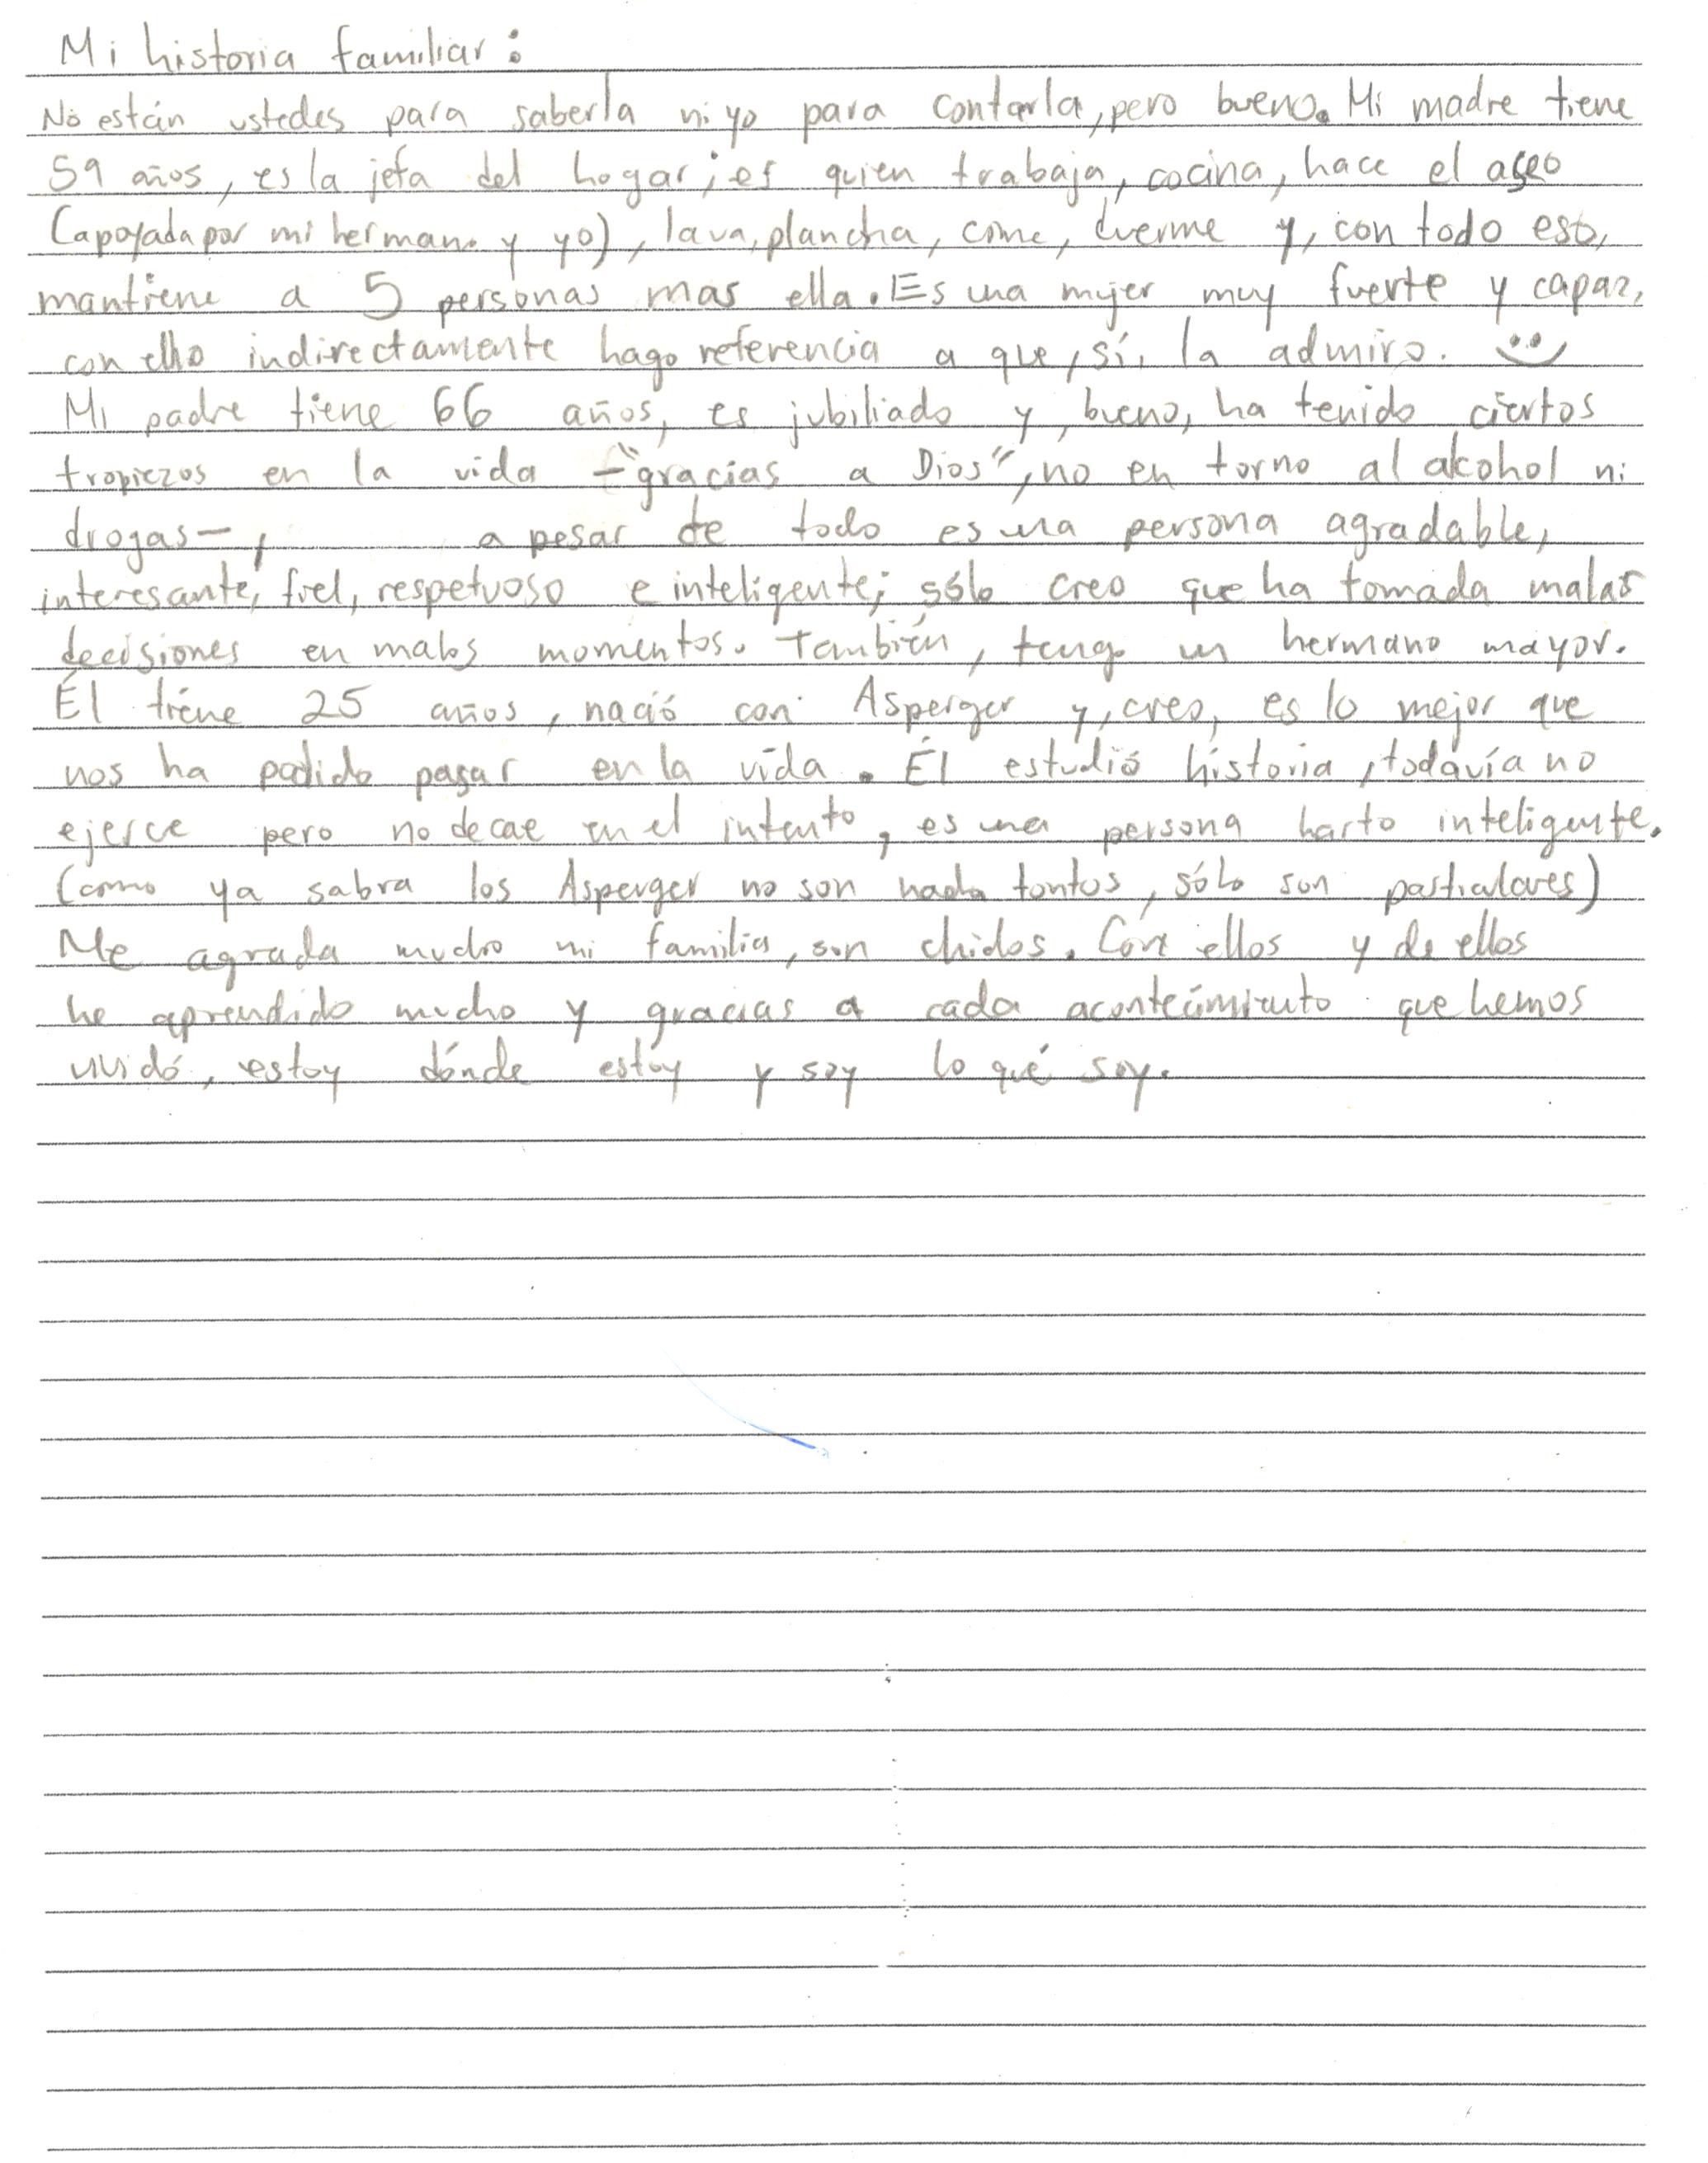 Mi historia familiar:
No están ustedes para saberla ni yo para contarla, pero bueno. Mi madre tiene
59 años, es la jefa del hogar; es quien trabaja, cocina, hace el aseo
(apoyada por mi hermano y yo), lava, plancha, come, duerme y, con todo esto,
mantiene a 5 personas mas ella. Es una mujer muy fuerte y capaz,
con ello indirectamente hago referencia a que, sí, la admiro.
Mi padre tiene 66 años, es jubiliado y, bueno, ha tenido ciertos
tropiezos en la vida -"gracias a Dios", no en torno al alcohol ni
drogas-, a pesar de todo es una persona agradable,
interesante, fiel, respetuoso e inteligente; sólo creo que ha tomada malas
decisiones en malos momentos. También, tengo un hermano mayor.
Él tiene 25 años, nació con Asperger y, creo, es lo mejor que
nos ha podido pasar en la vida. Él estudió historia, todavía no
ejerce pero no decae en el intento, es una persona harto inteligente.
(como ya sabra los Asperger no son nada tontos, sólo son)
Me agrada mucho mi familia, son chidos. Con ellos y de ellos
he aprendido mucho y gracias a cada acontecimiento que hemos
vividó, estoy dónde estoy y soy lo qué soy.